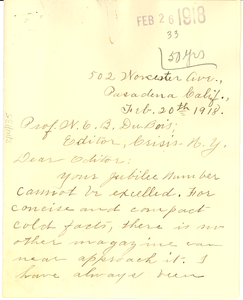 FEB 26 1918
33
50 yrs
502 Worcester Ave.,
Pasadena Calif.,
Feb. 20th 1918.
Prof. W. E. B. DuBois;
Editor, Crisis N.Y.
Dear Editor:
Your Jubilee Number
cannot be excelled. For
concise and compact
cold facts, there is no
other magazine can
near approach it. I
have always been